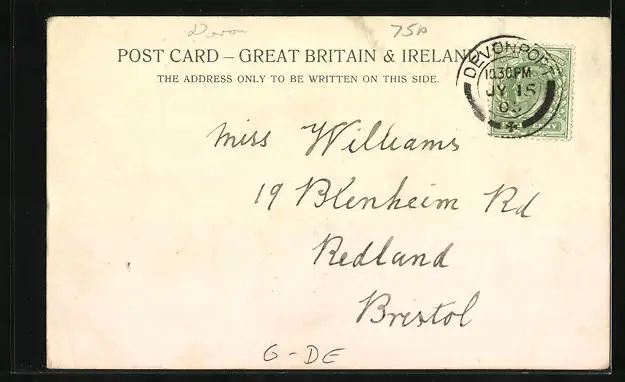 Devon 75p
POST CARD – GREAT BRITAIN & IRELAND
THE ADDRESS ONLY TO BE WRITTEN ON THIS SIDE.
DEVONPORT
10.30PM
JY 15
Miss Williams
19 Blenheim Rd
Redland
Bristol
G-DE